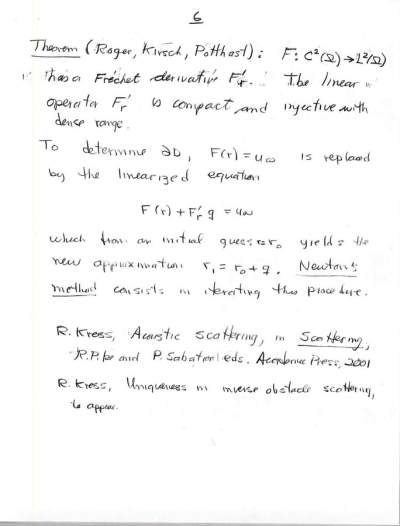 6
Theorem (Roger, Kirsch, Potthast): F: C²(Ω) → L²(Ω)
has a Fréchet derivative F'r. The linear
operator F'r is compact and injective with
dense range.
To determine ∂D, F(r) = u∞ is replaced
by the linearized equation
F(r) + F'r q = u∞
which from an initial guess r₀ yields the
new approximation r₁ = r₀ + q. Newton's
method consists in iterating this procedure.
R. Kress, Acoustic scattering, in Scattering,
R. Pike and P. Sabatier eds. Academic Press, 2001
R. Kress, Uniqueness in inverse obstacle scattering,
to appear.